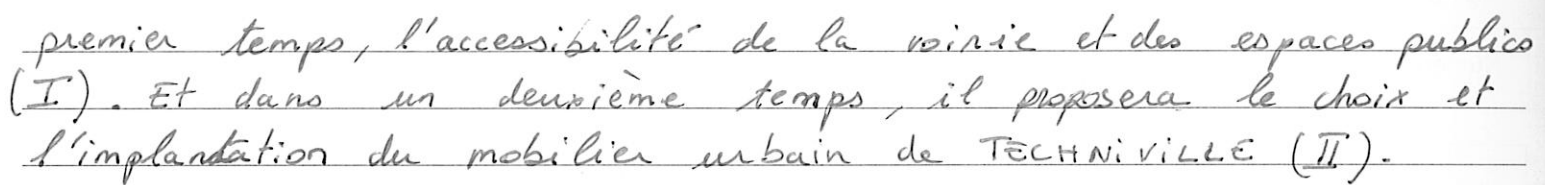 premier temps, l'accessibilité de la voirie et des espaces publics
(I). Et dans un deuxième temps, il proposera le choix et
l'implantation du mobilier urbain de TECHNIVILLE (II).